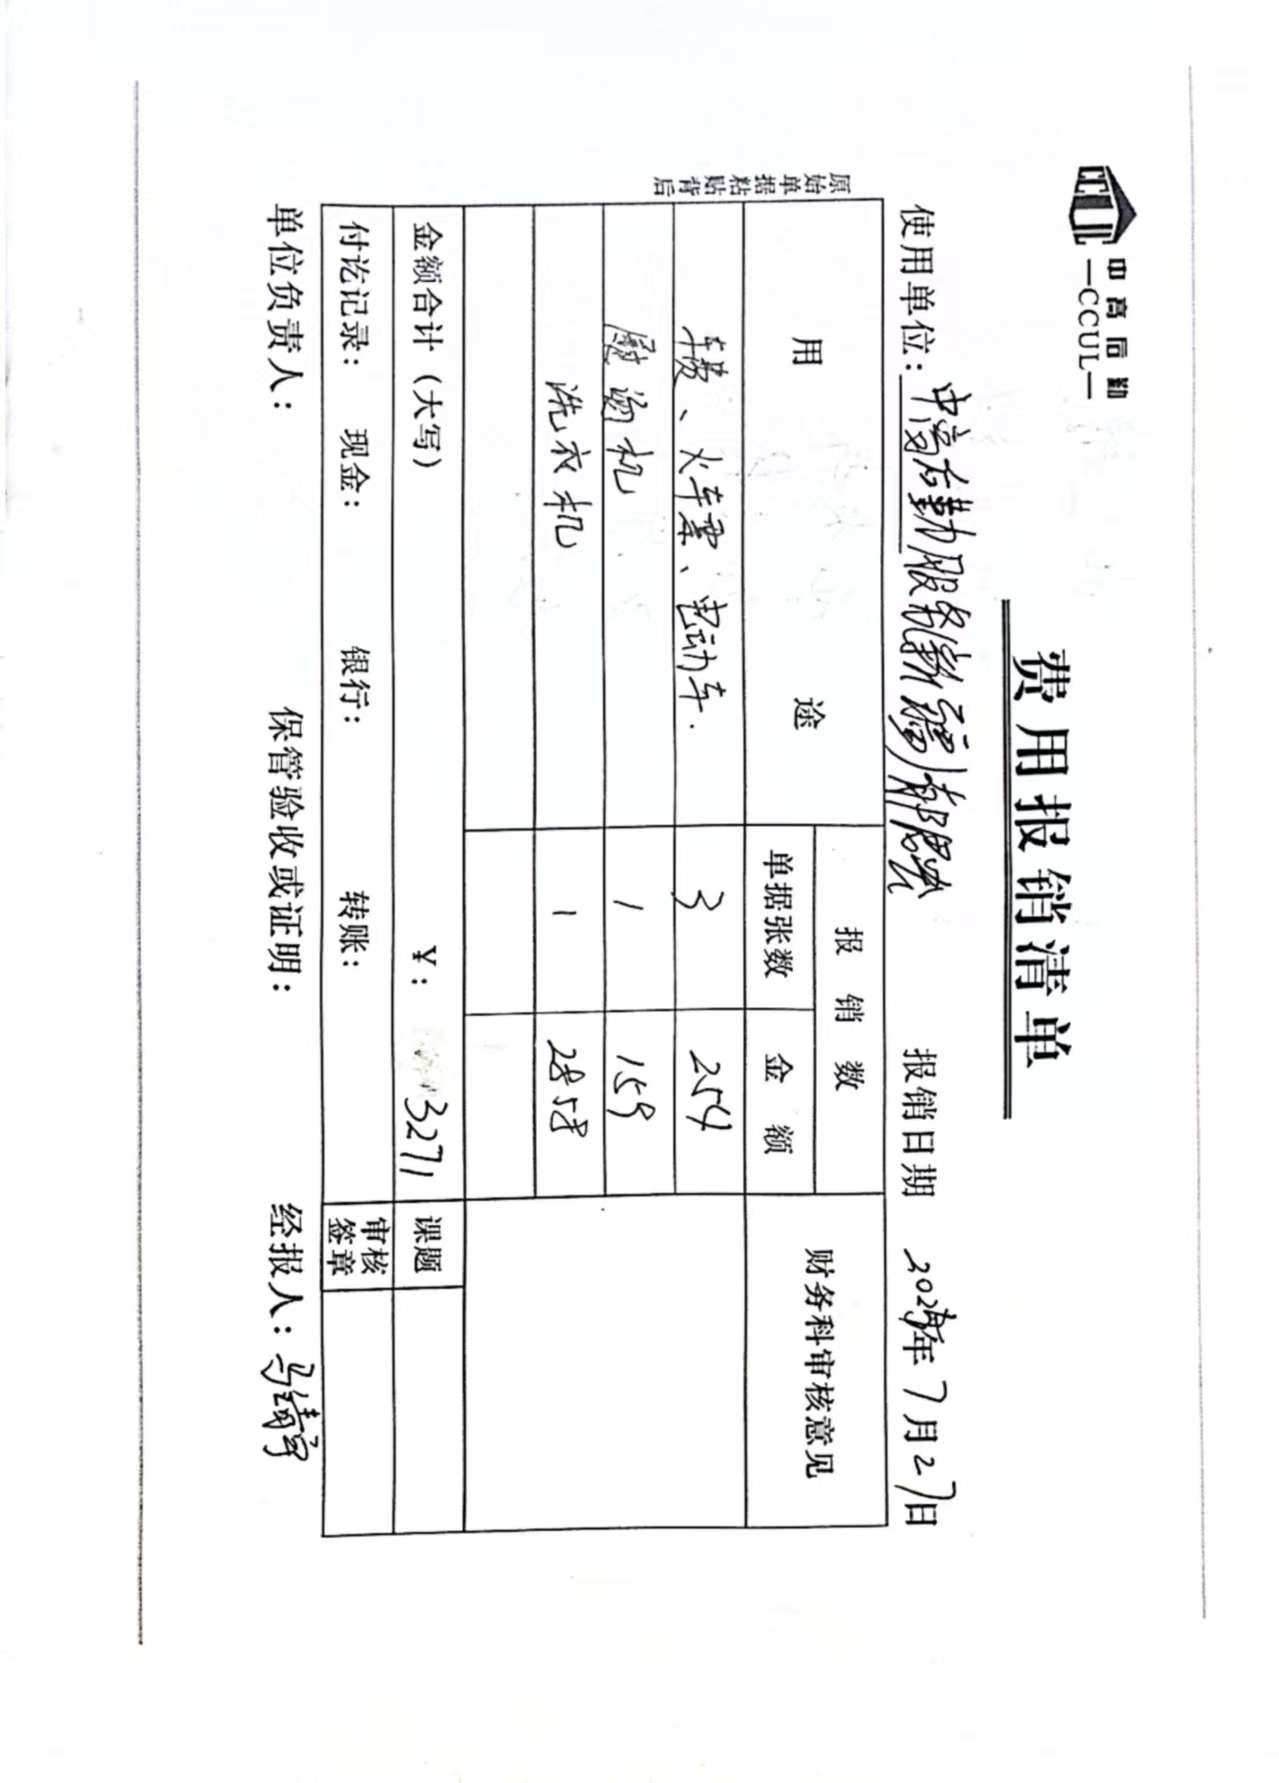 中高后勤
—CCUL—
费用报销清单
使用单位：中高后勤服务 报销日期 年7月27日
原始单据粘贴背后
用 途 报销数 财务科审核意见
单据张数 金额
火车票、电动车. 3 254
机 1 159
洗衣机 1 2858
金额合计（大写） ¥： 3271 课题
付讫记录： 现金： 银行： 转账： 审核签章
单位负责人： 保管验收或证明： 经报人：马靖宇